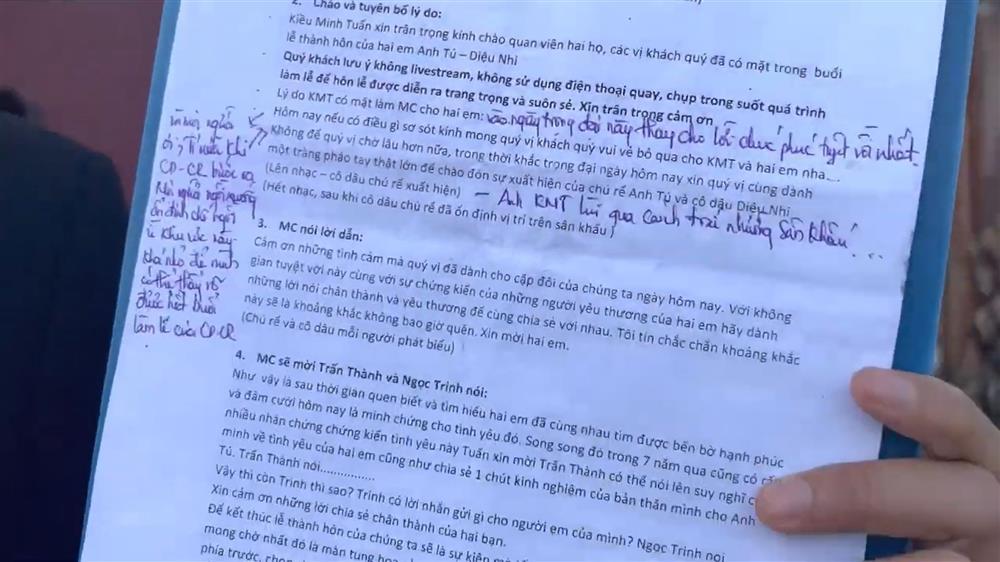 2. Chào và tuyên bố lý do:
Kiều Minh Tuấn xin trân trọng kính chào quan viên hai họ, các vị khách quý đã có mặt trong buổi
lễ thành hôn của hai em Anh Tú – Diệu Nhi
Quý khách lưu ý không livestream, không sử dụng điện thoại quay, chụp trong suốt quá trình
làm lễ để hôn lễ được diễn ra trang trọng và suôn sẻ. Xin trân trọng cảm ơn
Lý do KMT có mặt làm MC cho hai em: vào ngày trọng đại này thay cho lời chúc phúc tuyệt vời nhất.
Hôm nay nếu có điều gì sơ sót kính mong quý vị khách quý vui vẻ bỏ qua cho KMT và hai em nha...
Không để quý vị chờ lâu hơn nữa, trong thời khắc trọng đại ngày hôm nay xin quý vị cùng dành
một tràng pháo tay thật lớn để chào đón sự xuất hiện của chú rể Anh Tú và cô dâu Diệu Nhi
(Lên nhạc – cô dâu chú rể xuất hiện)
(Hết nhạc, sau khi cô dâu chú rể đã ổn định vị trí trên sân khấu)
– Anh KMT lùi qua cánh sân khấu...
CD-CR bước ra
ổn định chỗ ngồi
vì khu vực này
khá nhỏ để mình
có thể thấy rõ
được hết buổi
làm lễ của CD-CR
3. MC nói lời dẫn:
Cảm ơn những tình cảm mà quý vị đã dành cho cặp đôi của chúng ta ngày hôm nay. Với không
gian tuyệt vời này cùng với sự chứng kiến của những người yêu thương của hai em hãy dành
những lời nói chân thành và yêu thương để cùng chia sẻ với nhau. Tôi tin chắc chắn khoảng khắc
này sẽ là khoảng khắc không bao giờ quên. Xin mời hai em.
(Chú rể và cô dâu mỗi người phát biểu)
4. MC sẽ mời Trấn Thành và Ngọc Trinh nói:
Như vậy là sau thời gian quen biết và tìm hiểu hai em đã cùng nhau tìm được bến bờ hạnh phúc
và đám cưới hôm nay là minh chứng cho tình yêu đó. Song song đó trong 7 năm qua cũng có
nhiều nhân chứng chứng kiến tình yêu này Tuấn xin mời Trấn Thành có thể nói lên suy nghĩ
mình về tình yêu của hai em cũng như chia sẻ 1 chút kinh nghiệm của bản thân mình cho Anh
Tú. Trấn Thành nói..............
Vậy thì còn Trinh thì sao? Trinh có lời nhắn gửi gì cho người em của mình? Ngọc Trinh nói
Xin cảm ơn những lời chia sẻ chân thành của hai bạn.
Để kết thúc lễ thành hôn của chúng ta sẽ là sự kiện mà
mong chờ nhất đó là màn tung hoa
phía trước,